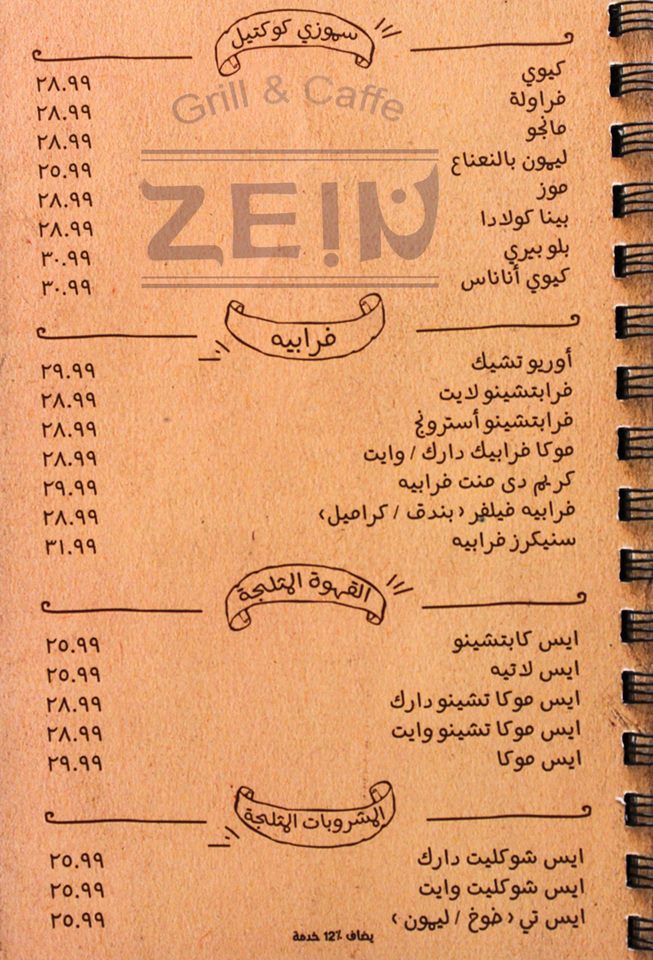 سموزي كوكتيل
كيوي ٢٨.٩٩
فراولة ٢٨.٩٩
مانجو ٢٨.٩٩
ليمون بالنعناع ٢٥.٩٩
موز ٢٨.٩٩
بينا كولادا ٢٨.٩٩
بلو بيري ٣٠.٩٩
كيوي أناناس ٣٠.٩٩
Grill & Caffe
ZEIN زين
فرابيه
أوريو تشيك ٢٩.٩٩
فرابتشينو لايت ٢٨.٩٩
فرابتشينو أسترونج ٢٨.٩٩
موكا فرابيك دارك / وايت ٢٨.٩٩
كريم دى منت فرابيه ٢٩.٩٩
فرابيه فيلفر ( بندق / كراميل ) ٢٨.٩٩
سنيكرز فرابيه ٣١.٩٩
القهوة المثلجة
ايس كابتشينو ٢٥.٩٩
ايس لاتيه ٢٥.٩٩
ايس موكا تشينو دارك ٢٨.٩٩
ايس موكا تشينو وايت ٢٨.٩٩
ايس موكا ٢٩.٩٩
المشروبات المثلجة
ايس شوكليت دارك ٢٥.٩٩
ايس شوكليت وايت ٢٥.٩٩
ايس تي ( خوخ / ليمون ) ٢٥.٩٩
يضاف 12٪ خدمة